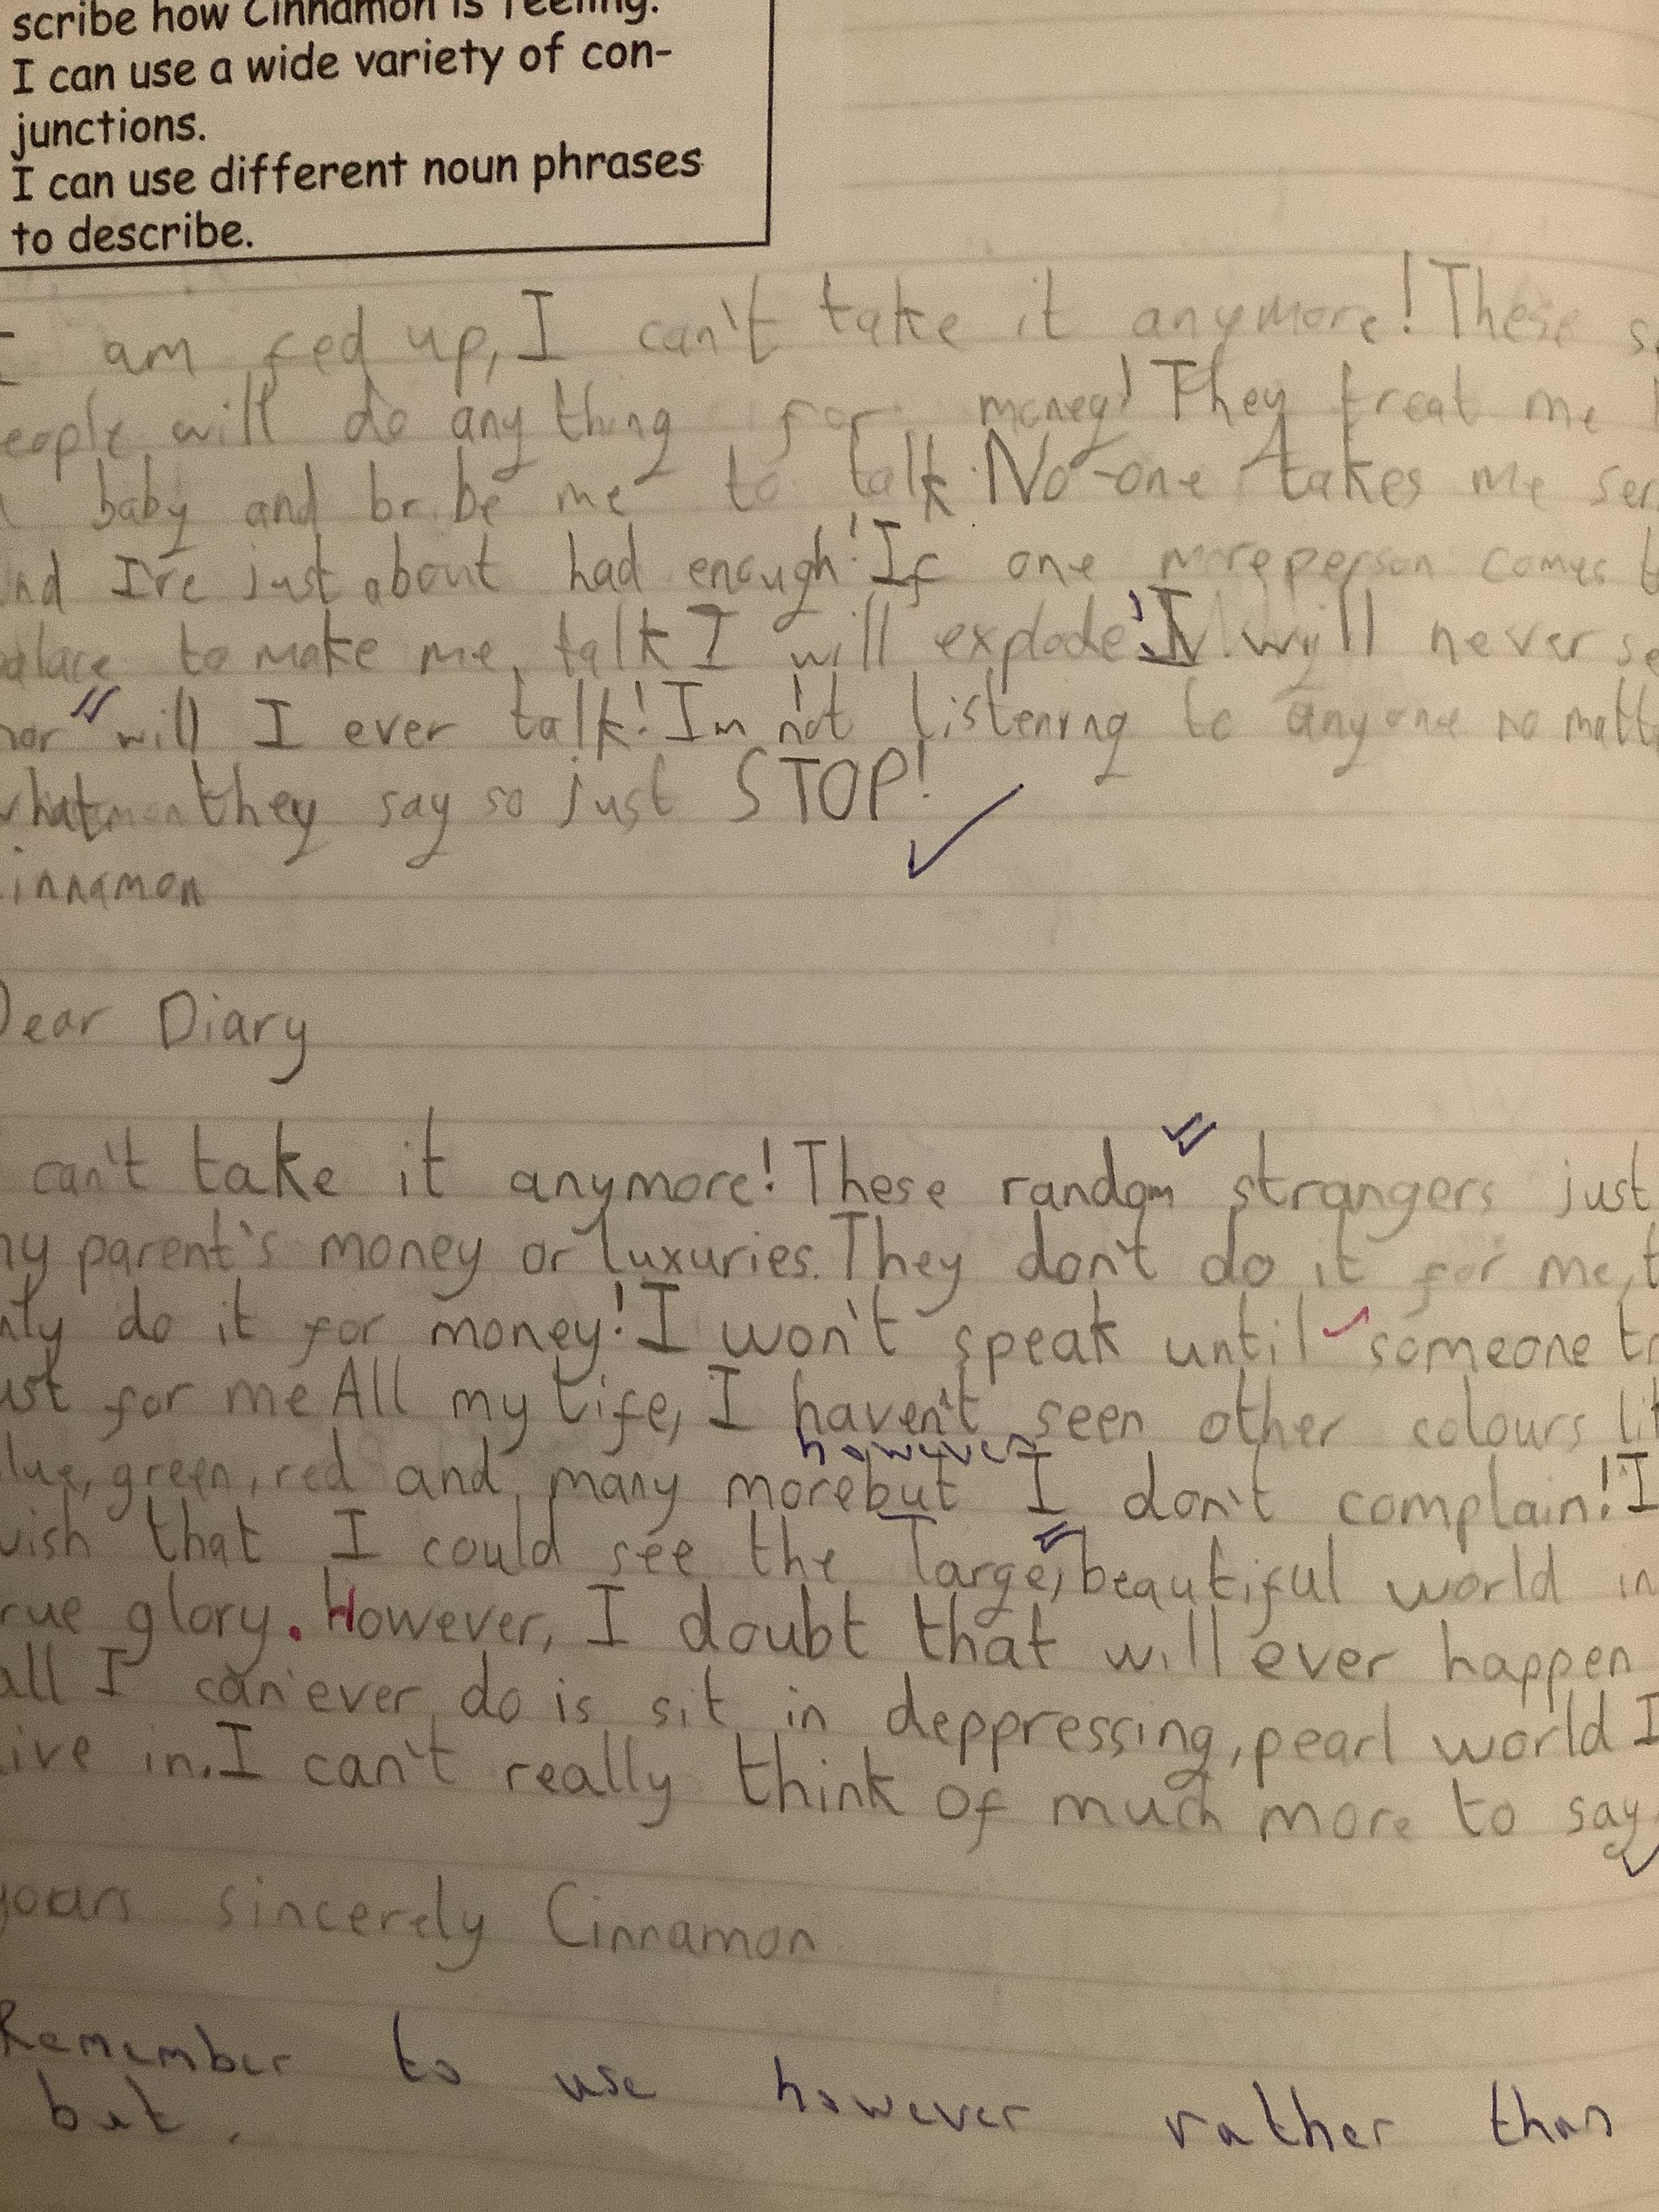 scribe how Cinnamon is feeling.
I can use a wide variety of con-
junctions.
I can use different noun phrases
to describe.
I am fed up, I can't take it anymore! These
eople will do anything for money! They treat me
baby and bribe me to talk. No-one takes me ser
nd I've just about had enough! If one more person comes t
alace to make me talk I will explode! I will never se
nor will I ever talk! I'm not listening to anyone no matt
what they say so just STOP!
innamon
Dear Diary
can't take it anymore! These random strangers just
my parent's money or luxuries. They don't do it for me, t
nly do it for money! I won't speak until someone tr
ust for me All my life, I haven't seen other colours li
however
lue, green, red and many more but I don't complain! I
wish that I could see the large, beautiful world in
rue glory. However, I doubt that will ever happen
all I can ever do is sit in deppressing, pearl world I
live in. I can't really think of much more to say
yours sincerely Cinnamon
Remember to use however rather than
but.